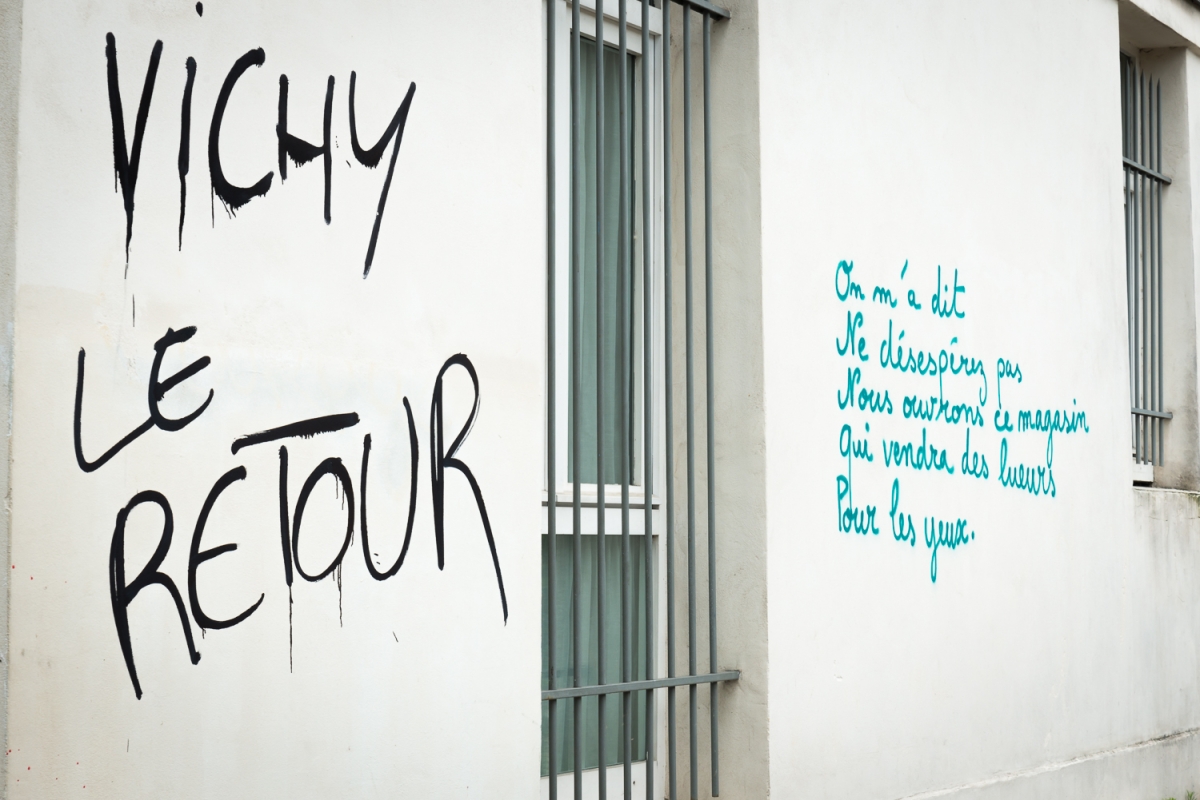 VICHY
LE
RETOUR
On m'a dit
Ne désespérez pas
Nous ouvrons ce magasin
qui vendra des lueurs
Pour les yeux.